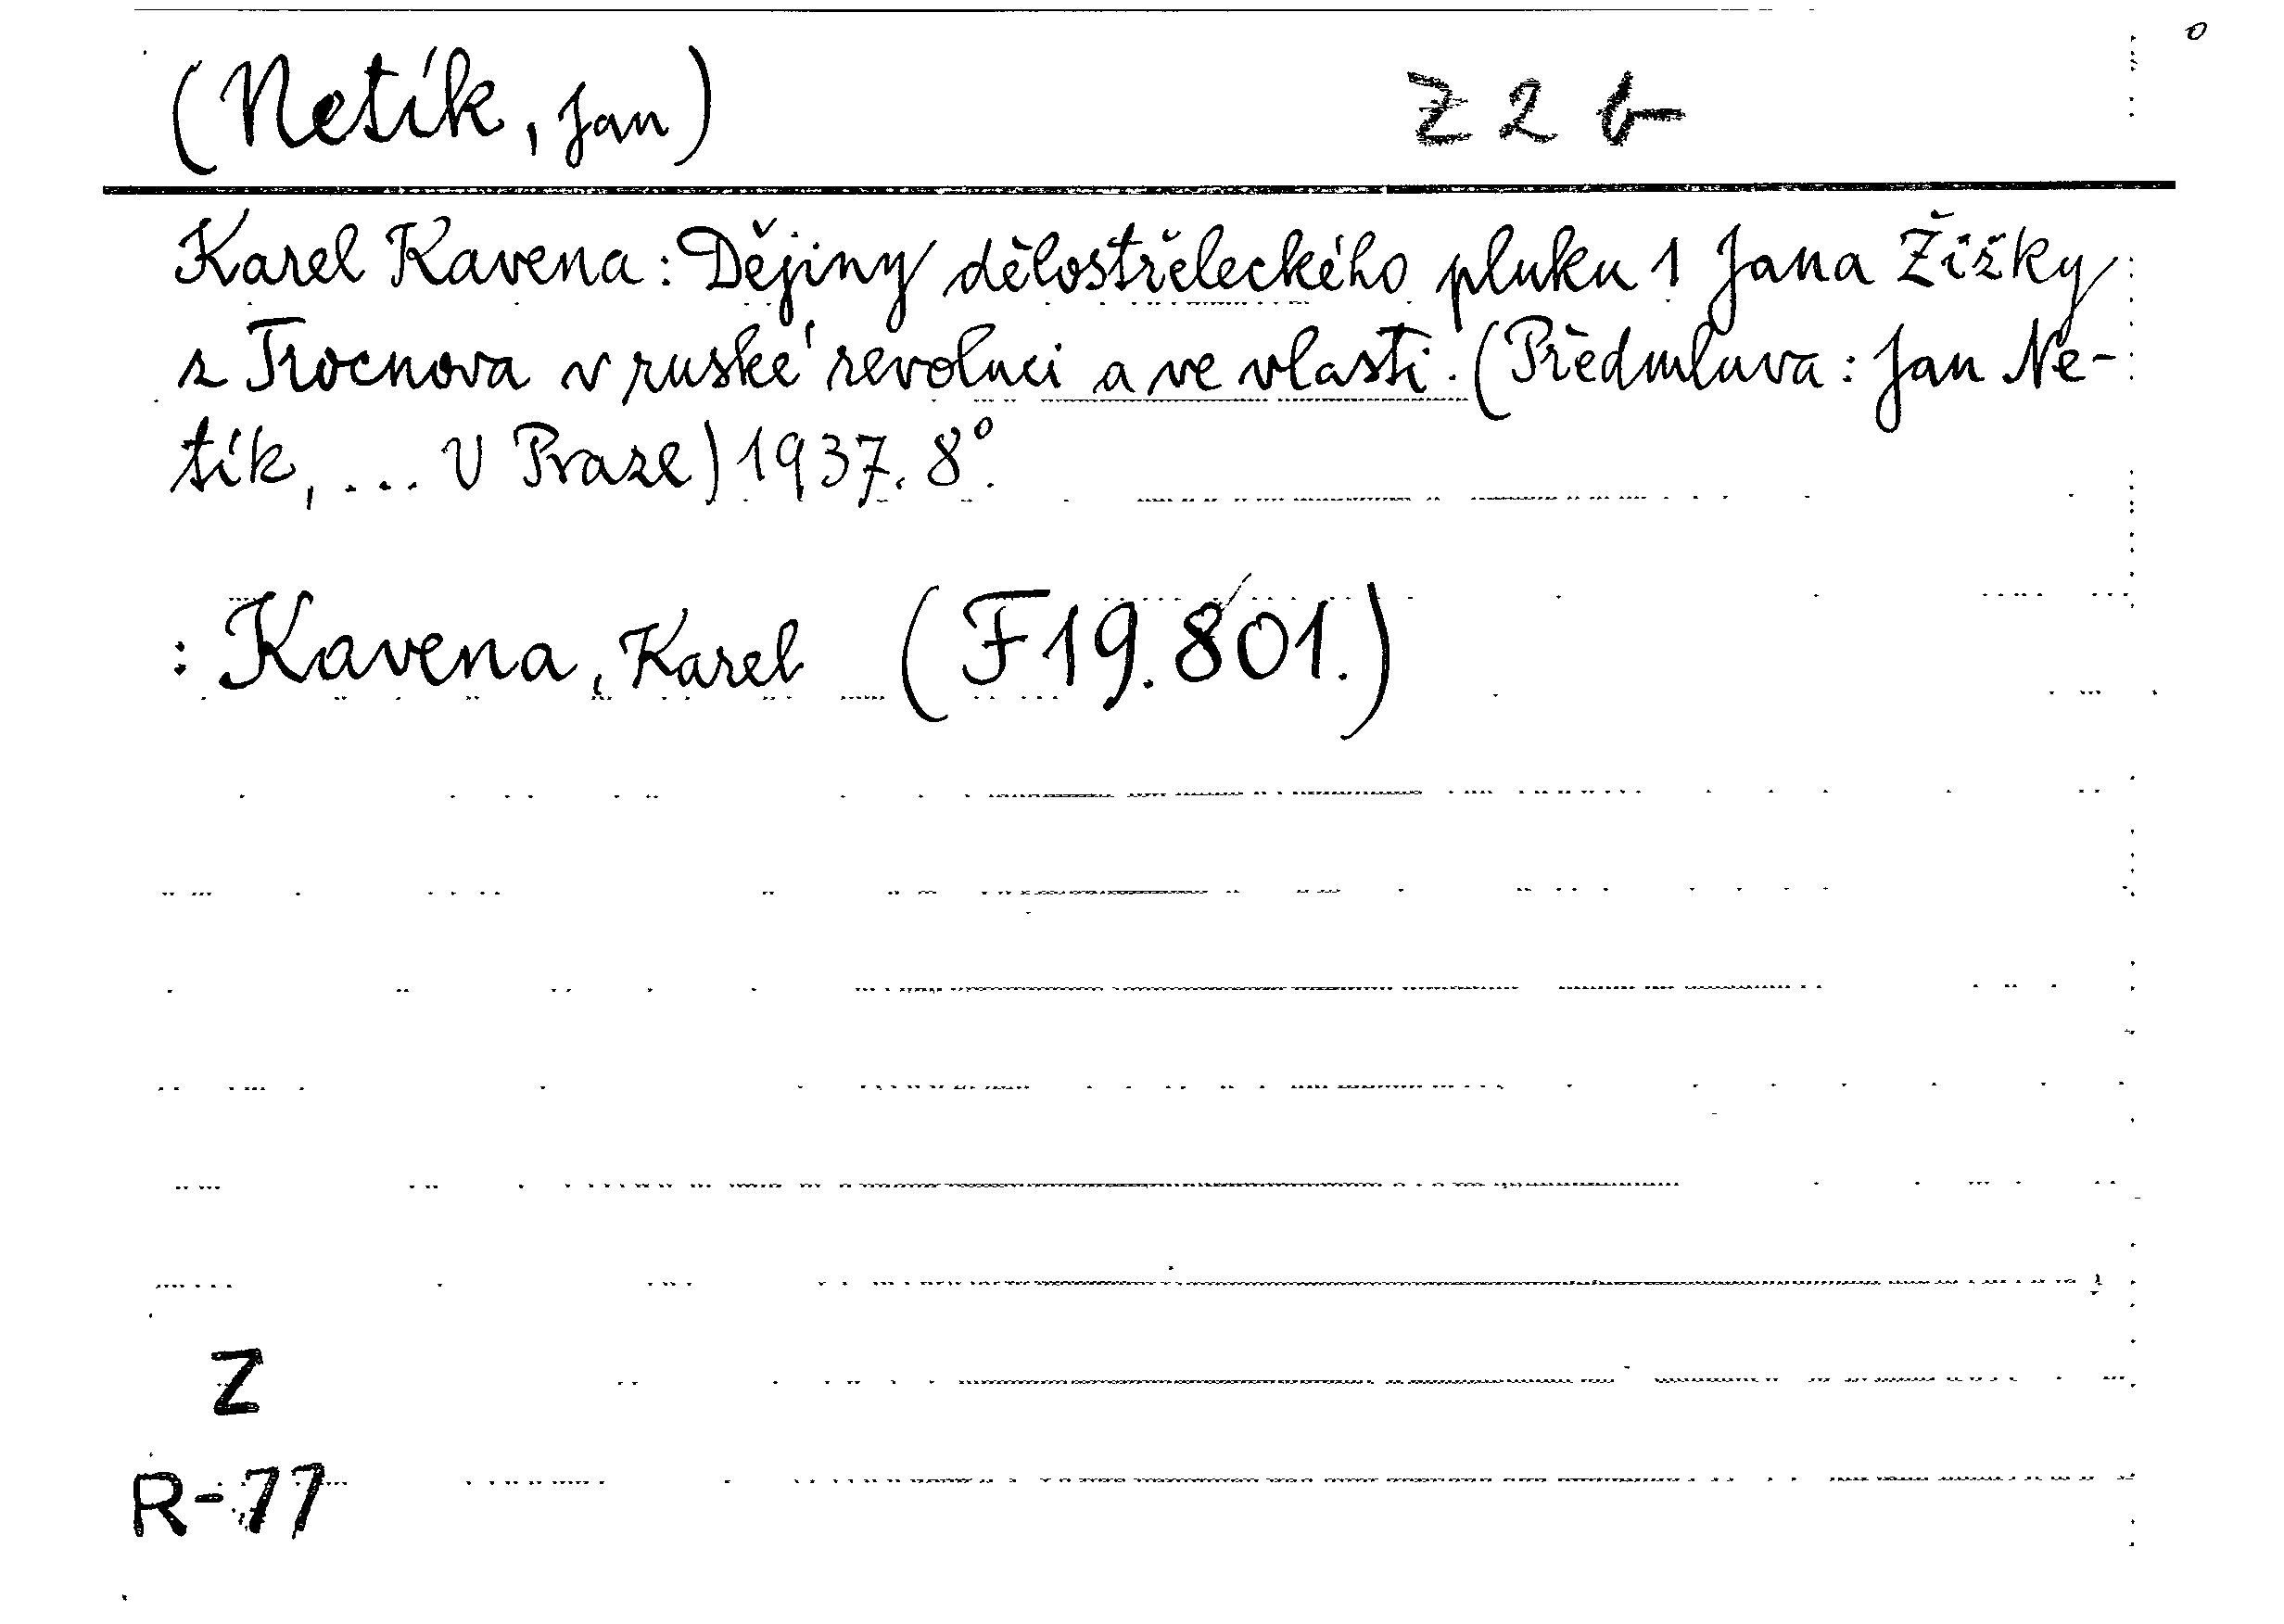 (Netík, Jan) Z 2 b
Karel Kavena: Dějiny dělostřeleckého pluku 1 Jana Žižky
z Trocnova v ruské revoluci a ve vlasti. (Předmluva: Jan Ne-
tík, ... V Praze) 1937. 8°.
: Kavena, Karel (F19.801.)
Z
R-77